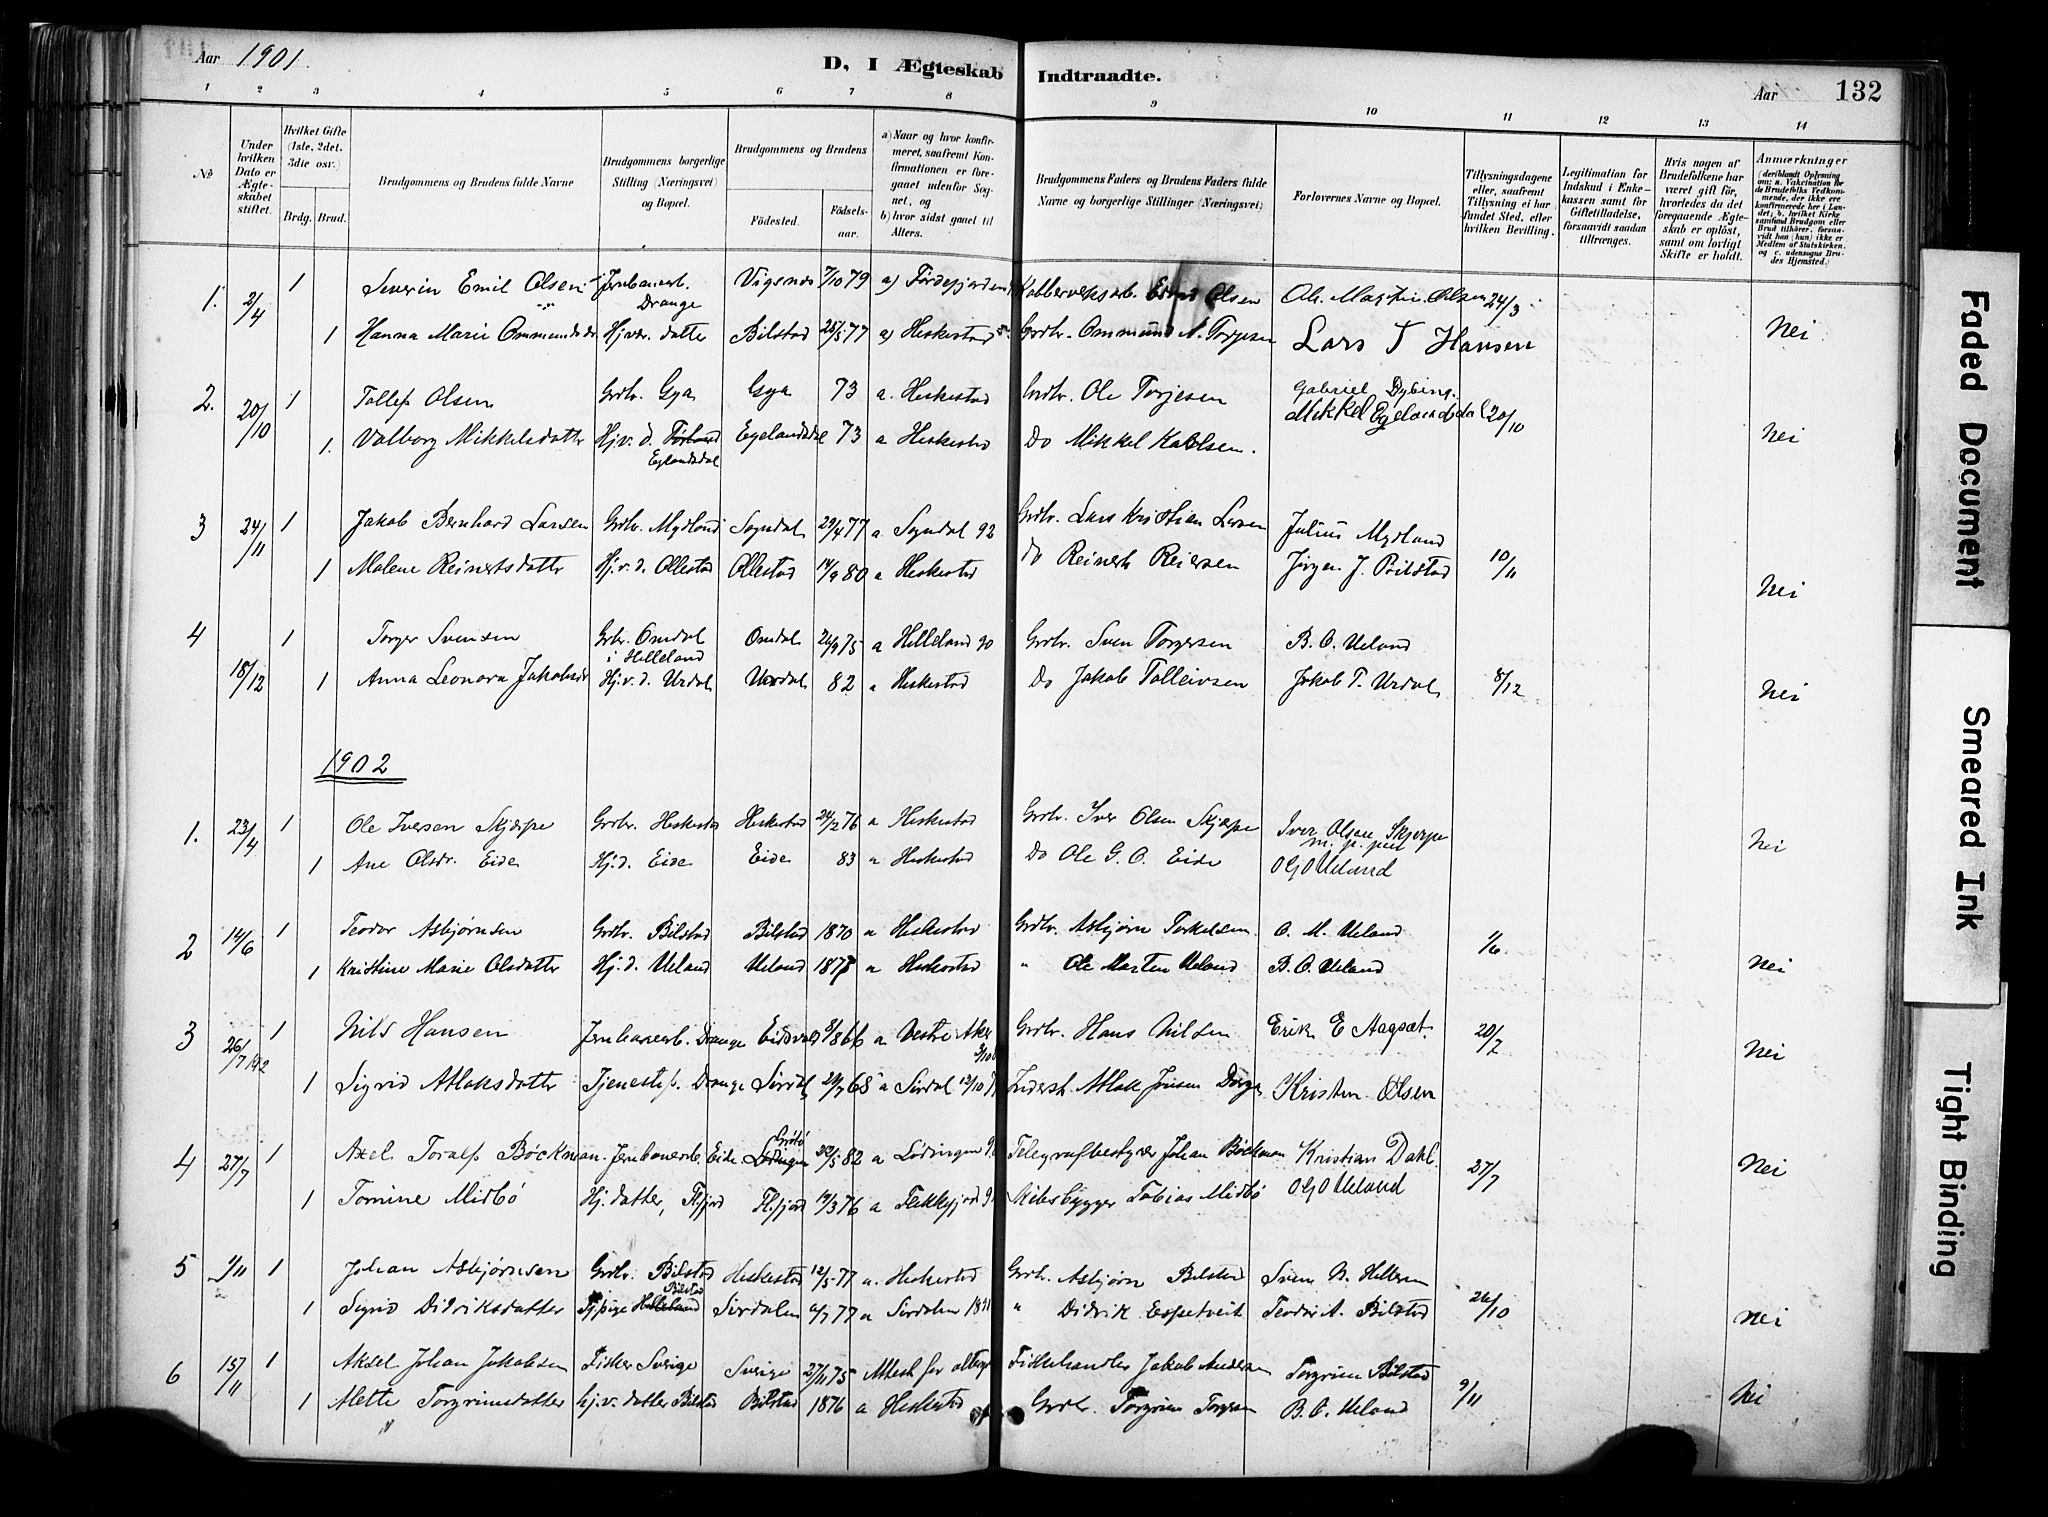 Aar 1901.
D. I Ægteskab Indtraadte.
Aar 132
1 2 3 4 5 6 7 8 9 10 11 12 13 14
No
Under hvilken Dato er Ægteskabet stiftet.
Hvilket Gifte (1ste, 2det, 3die osv.)
Brdg. Brud.
Brudgommens og Brudens fulde Navne
Brudgommens borgerlige Stilling (Næringsvei) og Bopæl.
Brudgommens og Brudens
Fødested. Fødselsaar.
a) Naar og hvor konfirmeret, saafremt Konfirmationen er foregaaet udenfor Sognet, og
b) hvor sidst gaaet til Alters.
Brudgommens Faders og Brudens Faders fulde Navne og borgerlige Stillinger (Næringsvei)
Forlovernes Navne og Bopæl.
Tillysningsdagene eller, saafremt Tillysning ei har fundet Sted, efter hvilken Bevilling.
Legitimation for Indskud i Enkekassen samt for Giftetilladelse, forsaavidt saadan tiltrænges.
Hvis nogen af Brudefolkene har været gift før, hvorledes da det foregaaende Ægteskab er opløst, samt om lovligt Skifte er holdt.
Anmærkninger (deriblandt Oplysning om: a. Vakcination for de Brudefolks Vedkommende, der ikke ere konfirmerede her i Landet; b. hvilket Kirkesamfund Brudgom eller Brud tilhører, forsaavidt han (hun) ikke er Medlem af Statskirken, og c. udensogns Brudes Hjemsted.)
1. 2/4 1 Severin Emil Olsen Jernbanearb. Drange Vigsnes 7/10 79 a) Førdefjorden Kobberverksarb. Olsen Ole Martin Olsen 24/3
1 Hanna Marie Ommundsdr. Hjvær. datter Bilstad 28/5 77 a) Heskestad Grdbr. Ommund A. Torjesen Lars T Hansen Nei
2. 20/10 1 Tollef Olsen Grdbr. Gya Gya 73 a. Heskestad Grdbr. Ole Torjesen Gabriel Dybing.
1. Valborg Mikkelsdatter Hj.v. d. Eglandsdal Egelandsdal 73 a Heskestad Do Mikkel Karlsen. Mikkel Egelandsdal 20/10 Nei
3 24/11 1 Jakob Bernhard Larsen Grdbr. Mydland Sogndal 29/4 77 a Sogndal 92 Grdbr. Lars Kristian Larsen Julius Mydland
1 Malene Reinertsdatter Hj.v. d. Ollestad Ollestad 14/9 80 a Heskestad Do Reinert Reiersen Jørgen J. Bilstad 10/11 Nei
4 1 Torger Svensen Grbr. Omdal i Helleland Omdal 26/9 75 a Helleland 90 Grdbr. Sven Torgersen B. O. Ueland
18/12 1 Anna Leonora Jakobsdr Hj.v. d. Urdal Urdal 82 a Heskestad Do Jakob Tolleivsen Jakob T. Urdal 8/12 Nei
1902
1. 23/4 1 Ole Iversen Skjærpe Grdbr. Heskestad Heskestad 24/2 76 a Heskestad Grdbr. Iver Olsen Skjærpe Iver Olsen Skjerpe m. p. pen
1 Ane Olsdr. Eide Hj. d. Eide Eide 83 a Heskestad Do Ole G. O. Eide O G O Ueland Nei
2 14/6 1 Teodor Asbjørnsen Grdbr. Bilstad Bilstad 1870 a Heskestad Grdbr. Asbjørn Torkelsen O. M. Ueland 1/6
1 Kristine Marie Olsdatter Hj. d. Ueland Ueland 1878 a Heskestad " Ole Marten Ueland B. O. Ueland Nei
3 26/7 1902 1 Nils Hansen Jernbanearb. Drange Eidsvold 8/8 66 a Vestre Aker Grdbr. Hans Nilsen Erik E Aagsæt 20/7 Nei
1 Sigrid Atlaksdatter Tjenestep. Drange Sirdal 29/7 68 a Sirdal 12/10 Inderst. Atlak Jonsen Kristen Olsen
4 27/7 1 Axel Toralf Böckman. Jernbanearb. Eide Grötö Lödingen 22/5 82 a Lödingen Telegrafbestyrer Johan Böckman Kristian Dahl
1 Tomine Midbö Hj. datter, Flfjord Flfjord 19/3 76 a Flekkefjord 91 Skibsbygger Tobias Midbö O G O Ueland 27/7 Nei
5 1/11 1 Johan Asbjørnsen Grdbr. Bilstad Heskestad 12/5 77 a. Heskestad Grdbr. Asbjørn Bilstad Sven N. Helleren
1 Sigrid Didriksdatter Tj.pige Bilstad Sirdalen 6/7 77 a Sirdalen 1891 " Didrik Espetveit Teodor A. Bilstad 26/10 Nei
6 15/11 1 Aksel Johan Jakobsen Fisker Sverige Sverige 27/11 75 Attest for altergang Fiskehandler Jakob Andersen Torgrim Bilstad
1 Mette Torgrimsdatter hj.v. datter Bilstad Bilstad 1876 a Heskestad Grdbr. Torgrim Torgersen B. O. Ueland 9/11 Nei
Faded Document
Smeared Ink
Tight Binding